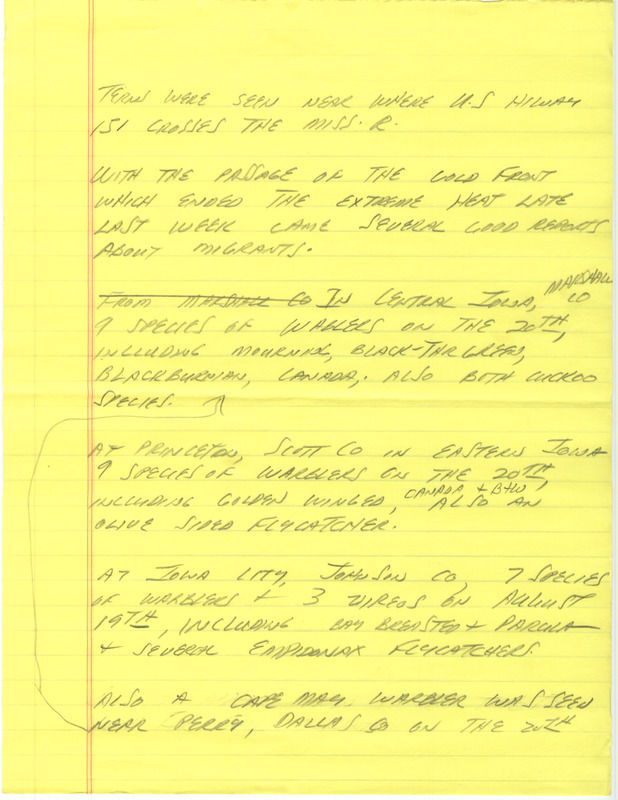 TERNS WERE SEEN NEAR WHERE U.S HIWAY
151 CROSSES THE MISS. R.
WITH THE PASSAGE OF THE COLD FRONT
WHICH ENDED THE EXTREME HEAT LATE
LAST WEEK CAME SEVERAL GOOD REPORTS
ABOUT MIGRANTS.
FROM MARSHALL CO IN CENTRAL IOWA, MARSHALL CO
9 SPECIES OF WARLERS ON THE 20TH,
INCLUDING MOURNING, BLACK-THR GREEN,
BLACKBURNIAN, CANADA, ALSO BOTH CUCKOO
SPECIES.
AT PRINCETON, SCOTT CO IN EASTERN IOWA
9 SPECIES OF WARBLERS ON THE 20TH,
INCLUDING GOLDEN WINGED, CANADA + B+W ALSO AN
OLIVE SIDED FLYCATCHER.
AT IOWA CITY, JOHNSON CO, 7 SPECIES
OF WARBLERS + 3 VIREOS ON AUGUST
19TH, INCLUDING BAY BREASTED + PARULA
+ SEVERAL EMPIDONAX FLYCATCHERS.
ALSO A CAPE MAY WARBLER WAS SEEN
NEAR PERRY, DALLAS CO ON THE 20TH